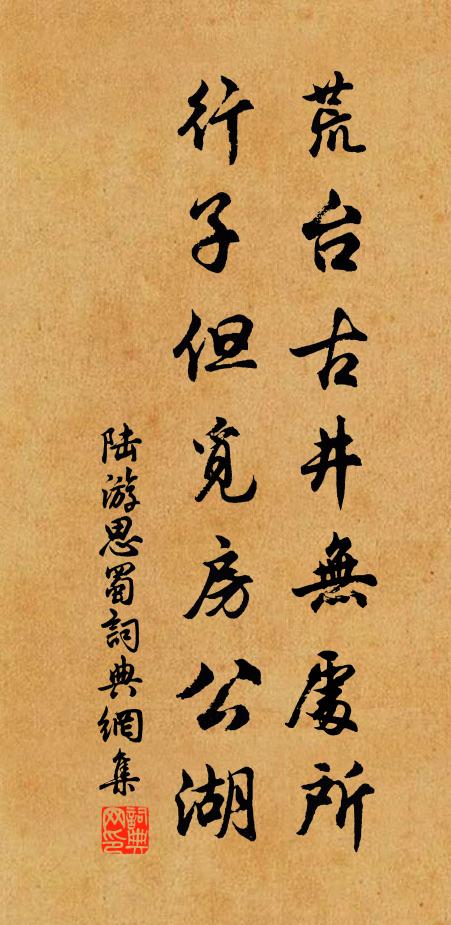 荒台古井無處所
行子但覓房公湖
陆游思蜀詞典網集
詞典网印